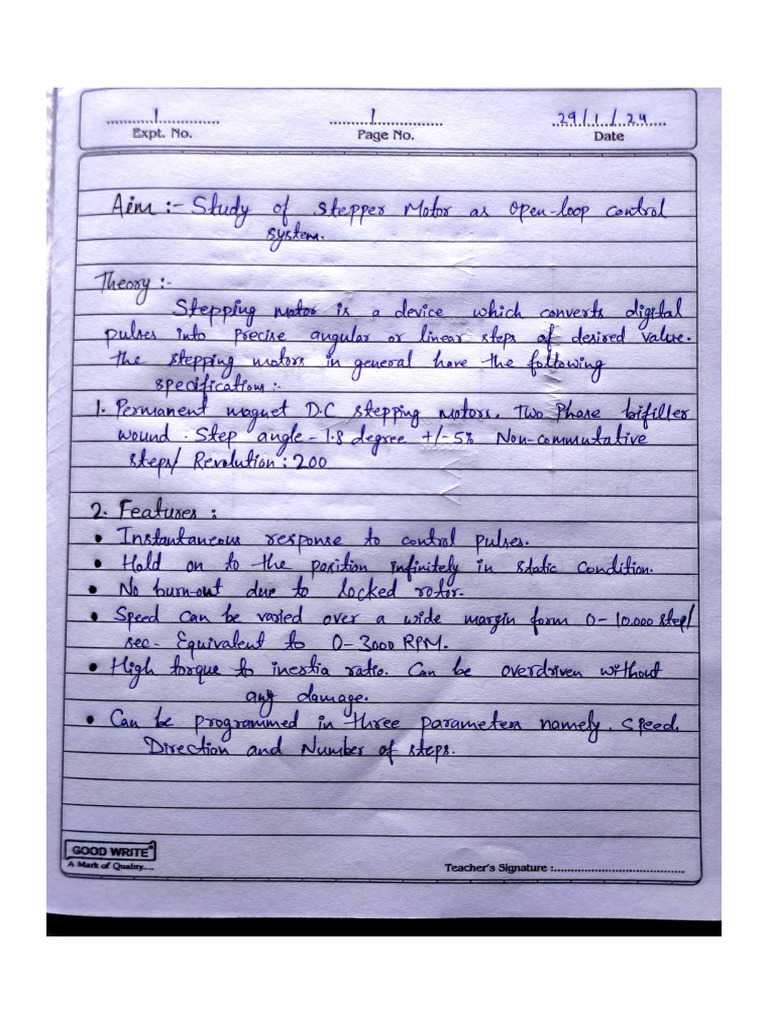 1 1 29/1/24
Expt. No. Page No. Date
Aim :- Study of stepper Motor as open-loop control
system.
Theory :-
Stepping motor is a device which converts digital
pulses into precise angular or linear steps of desired value.
the stepping motors in general have the following
specifications :-
1. Permanent magnet D.C stepping motors. Two Phase bifiller
wound. Step angle - 1.8 degree +/- 5% Non-commutative
steps/ Revolution : 200
2. Features :
• Instantaneous response to control pulses.
• Hold on to the position infinitely in static Condition.
• No burn-out due to Locked rotor.
• Speed can be varied over a wide margin form 0-10.000 step/
sec- Equivalent to 0-3000 RPM.
• High torque to inertia ratio. Can be overdriven without
any damage.
• Can be programmed in three parameters namely. Speed.
Direction and Number of steps.
GOOD WRITE
A Mark of Quality....
Teacher's Signature :